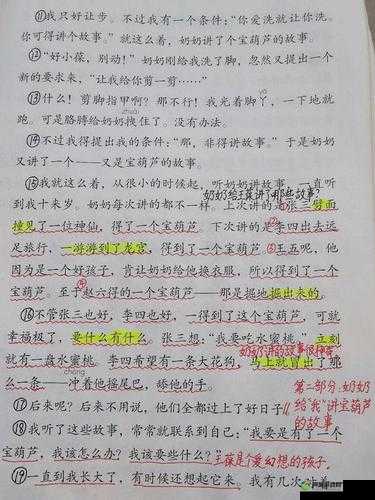 ⑪我只好让步。不过我有一个条件:“你爱洗就让你洗。
你可得讲个故事。”就这么着,奶奶讲了个宝葫芦的故事。
⑫“好小葆,别动!”奶奶刚给我洗了脚,忽然又提出一个
新的要求来,“让我给你剪一剪……”
⑬什么!剪脚指甲啊?那不行!我光着脚丫,一下地就
yā
跑。可是胳膊给奶奶拽住了。没有办法。
zhuài
⑭不过我得提出我的条件:“那,非得讲故事。”于是奶奶
又讲了一个——又是宝葫芦的故事。
⑮我就这么着,从很小的时候起,听奶奶讲故事,一直听
奶奶给王葆讲了哪些故事?
到我十来岁。奶奶每次讲的都不一样。上次讲的是①张三劈面
撞见了一位神仙,得了一个宝葫芦。下次讲的是②李四出去远
足旅行,一游游到了龙宫,得到了一个宝葫芦。③王五呢,他
因为是一个好孩子,肯让奶奶给他换衣服,所以得到了一个
宝葫芦。至于④赵六得的一个宝葫芦——那是掘地掘出来的。
⑯不管张三也好,李四也好,一得到了这个宝葫芦,可就
幸福极了,要什么有什么。张三想:“我要吃水蜜桃。”立刻
奶奶讲的故事很神奇
就有一盘水蜜桃。李四希望有一条大花狗,马上就冒出了那
么一条——冲着他摇尾巴,舔他的手。
chòng
第二部分:奶奶
给“我”讲宝葫芦
的故事
⑰后来呢?后来不用说,他们全都过上了好日子。
⑱我听了这些故事,常常就联系到自己:“我要是有了一个
宝葫芦,我该怎么办?我该要些什么?”王葆是个爱幻想的孩子.
⑲一直到我长大了,有时候还想起它来。我有几次对着